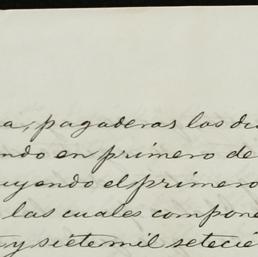 a, pagaderas los di
ndo en primero de
uyendo el primero
las cuales compone
y siete mil setecie